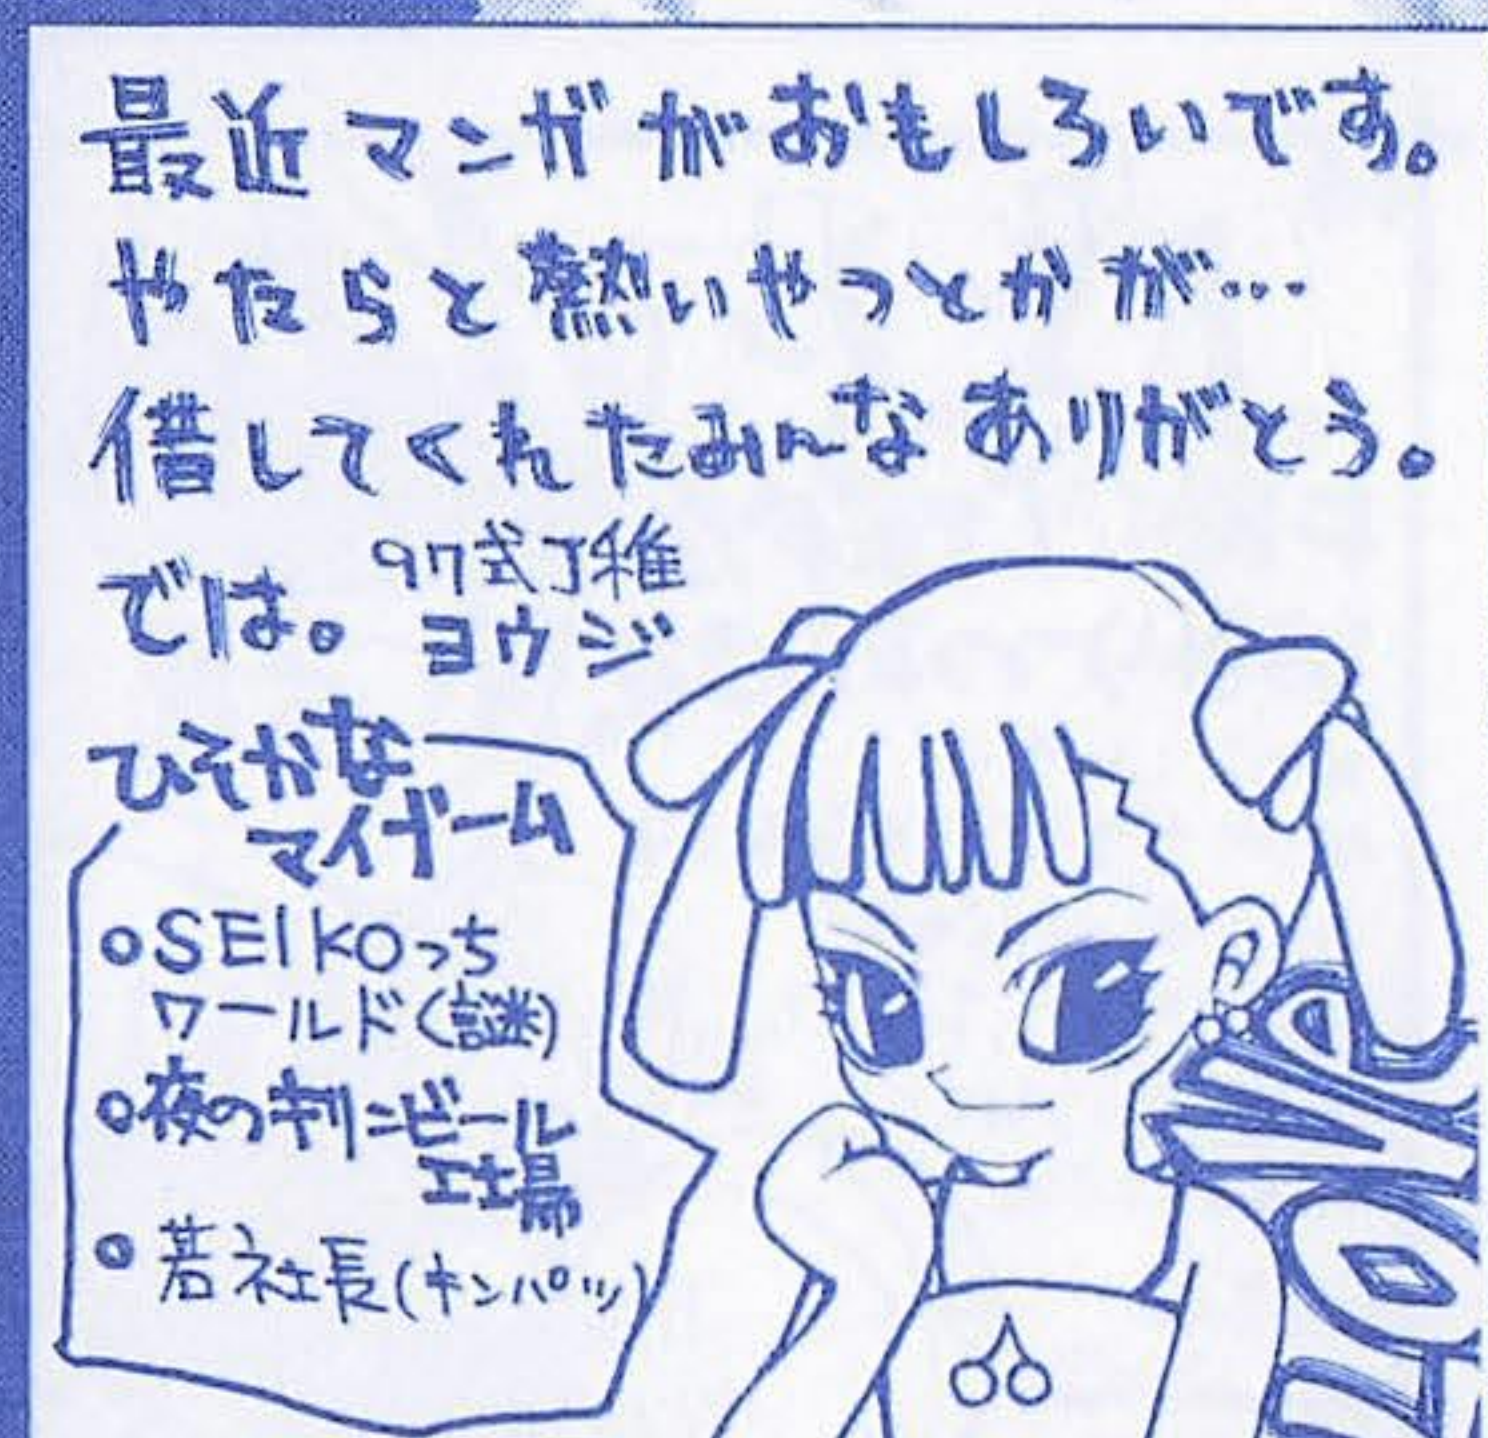 最近マンガがおもしろいです。
やたらと熱いやつとかが…
借してくれたみんなありがとう。
では。
97式丁稚
ヨウジ
ひそかな
マイブーム
○SEIKOっち
ワールド(謎)
○夜のキリンビール
工場
○若社長(キンパツ)